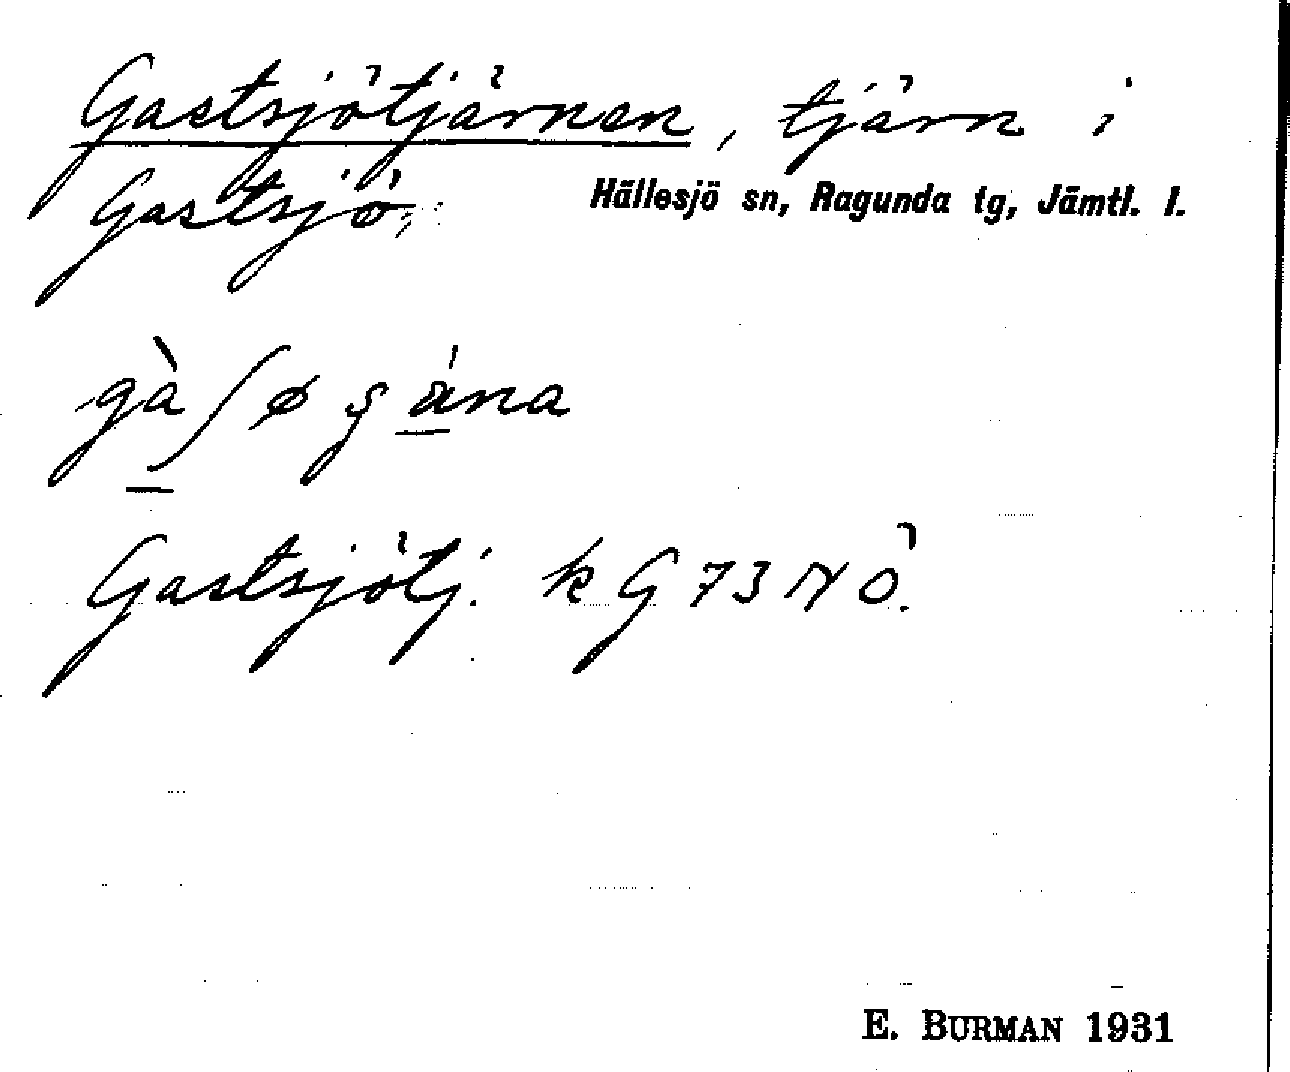 Gastsjötjärnen, tjärn i
Gastsjö, Hällesjö sn, Ragunda tg, Jämtl. l.
Gastsjötj. k G 73 NÖ.
E. BURMAN 1931